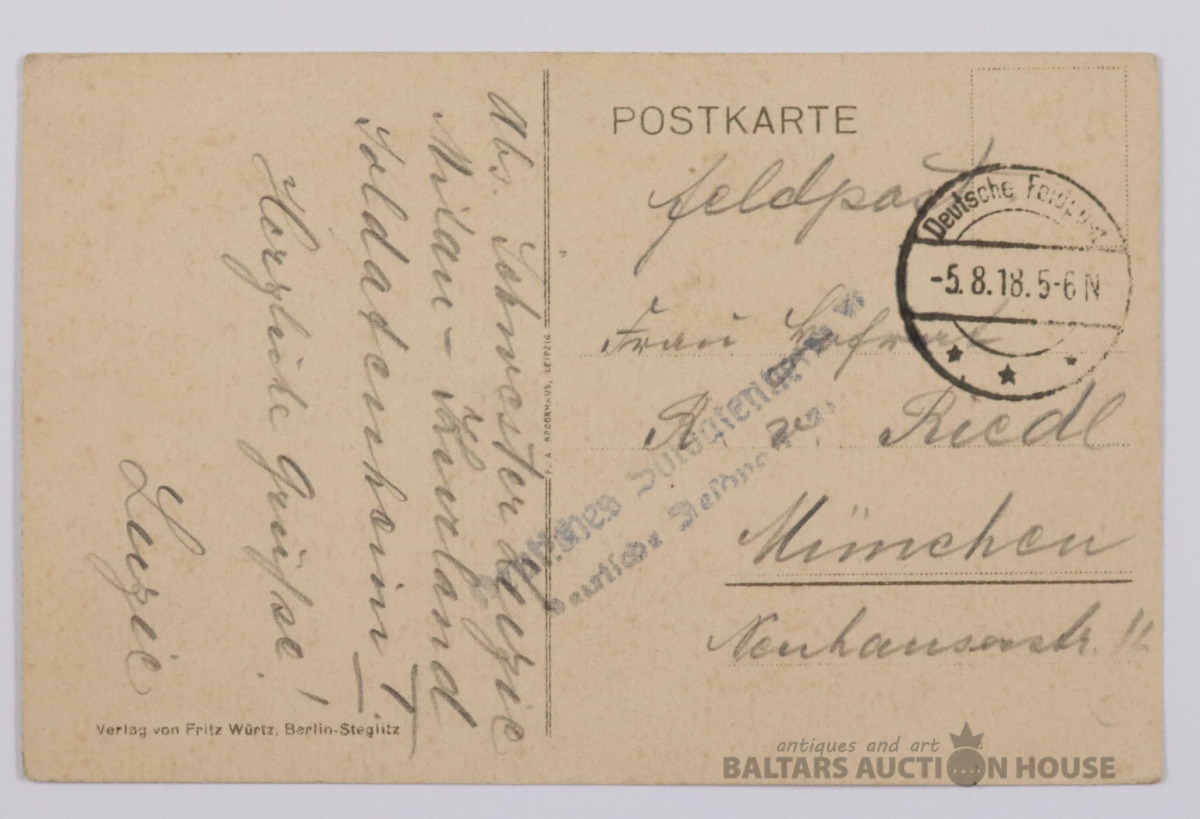 Abs. Schwester Luzie
Mitau – Kurland
Soldatenheim 1
Herzliche Grüße!
Luzie
Verlag von Fritz Würtz, Berlin-Steglitz
F. A. BROCKHAUS, LEIPZIG
POSTKARTE
feldpost
Deutsche Feldpost
-5.8.18.5-6 N
Frau Hofrat
R. Riedl
München
Neuhauserstr. 11
Deutsche Feldpost
antiques and art
BALTARS AUCTION HOUSE